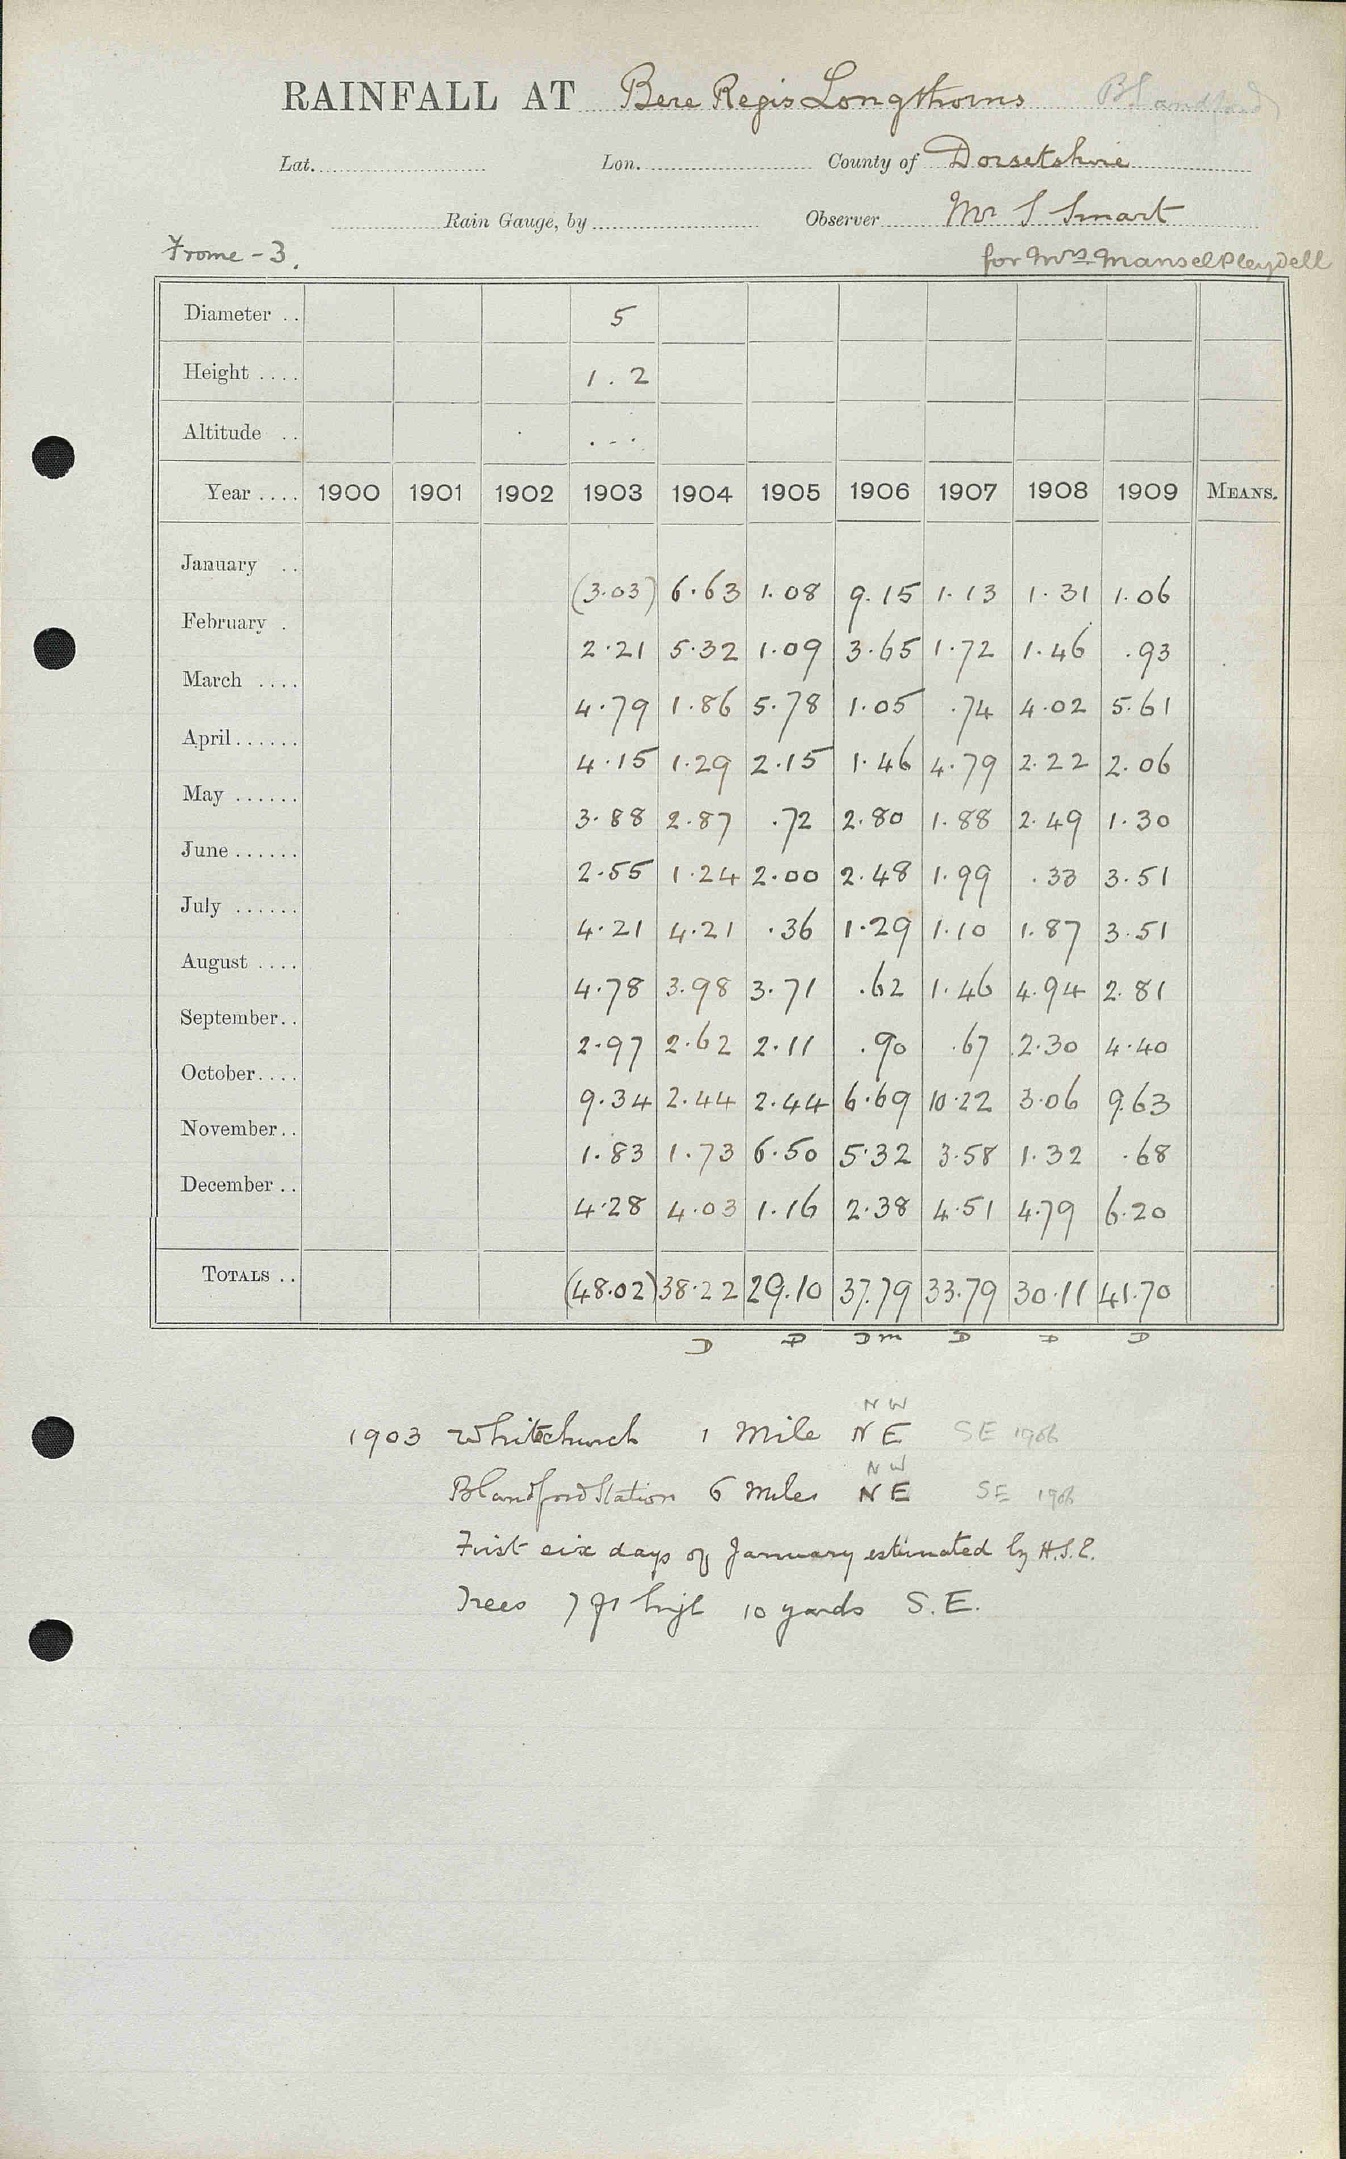 RAINFALL AT Bere Regis Longthorns Blandford
Lat. Lon. County of Dorsetshire
Rain Gauge, by Observer Mr S Smart
Frome - 3. for Mrs. Mansel Pleydell
Diameter .. 5
Height .... 1.2
Altitude .. ...
Year .... 1900 1901 1902 1903 1904 1905 1906 1907 1908 1909 MEANS.
January .. (3.03) 6.63 1.08 9.15 1.13 1.31 1.06
February . 2.21 5.32 1.09 3.65 1.72 1.46 .93
March .... 4.79 1.86 5.78 1.05 .74 4.02 5.61
April ...... 4.15 1.29 2.15 1.46 4.79 2.22 2.06
May ...... 3.88 2.87 .72 2.80 1.88 2.49 1.30
June ...... 2.55 1.24 2.00 2.48 1.99 .33 3.51
July ...... 4.21 4.21 .36 1.29 1.10 1.87 3.51
August .... 4.78 3.98 3.71 .62 1.46 4.94 2.81
September.. 2.97 2.62 2.11 .90 .67 2.30 4.40
October.... 9.34 2.44 2.44 6.69 10.22 3.06 9.63
November.. 1.83 1.73 6.50 5.32 3.58 1.32 .68
December .. 4.28 4.03 1.16 2.38 4.51 4.79 6.20
TOTALS .. (48.02) 38.22 29.10 37.79 33.79 30.11 41.70
D D Dm D D D
NW
1903 Whitechurch 1 Mile NE SE 1906
NW
Blandford Station 6 Miles NE SE 1906
First six days of January estimated by H.S.E.
Trees 7 ft high 10 yards S.E.